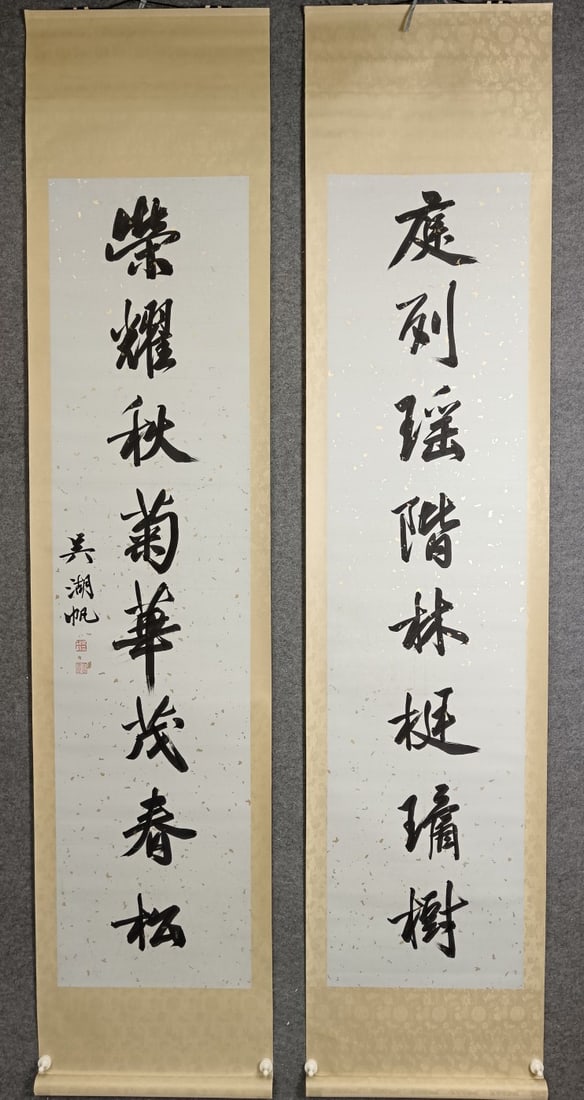 庭列瑶階林挺璚樹
榮耀秋菊華茂春松
吴湖帆